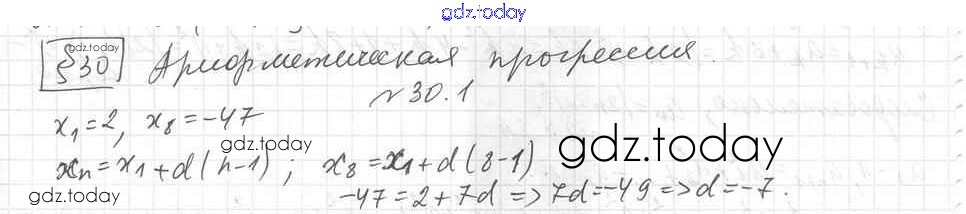 gdz.today
§30 gdz.today Арифметическая прогрессия.
№ 30.1
x₁=2, x₈=-47
gdz.today
xₙ=x₁+d(n-1); x₈=x₁+d(8-1) gdz.today
gdz.today
-47=2+7d => 7d=-49 => d=-7.